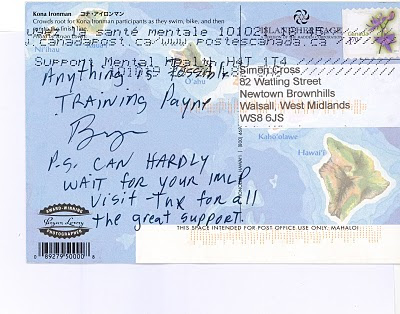 Kona Ironman コナ・アイロンマン
Crowds root for Kona Ironman participants as they swim, bike, and then
santé mentale 101020
ISLAND HERITAGE
.canadapost.ca/www.postescanada.ca
Canada
Ni'ihau
Support Mental Health H4T 1T4
O'ahu
Anything is Possible
TRAINING Payne
P.S. CAN HARDLY
WAIT FOR YOUR IMLP
Visit - Thx for all
the great support.
Simon Cross
82 Watling Street
Newtown Brownhills
Walsall, West Midlands
WS8 6JS
Kaho'olawe
Hawai'i
AWARD-WINNING
PHOTOGRAPHER
THIS SPACE INTENDED FOR POST OFFICE USE ONLY. MAHALO!
0 89279 50000 8